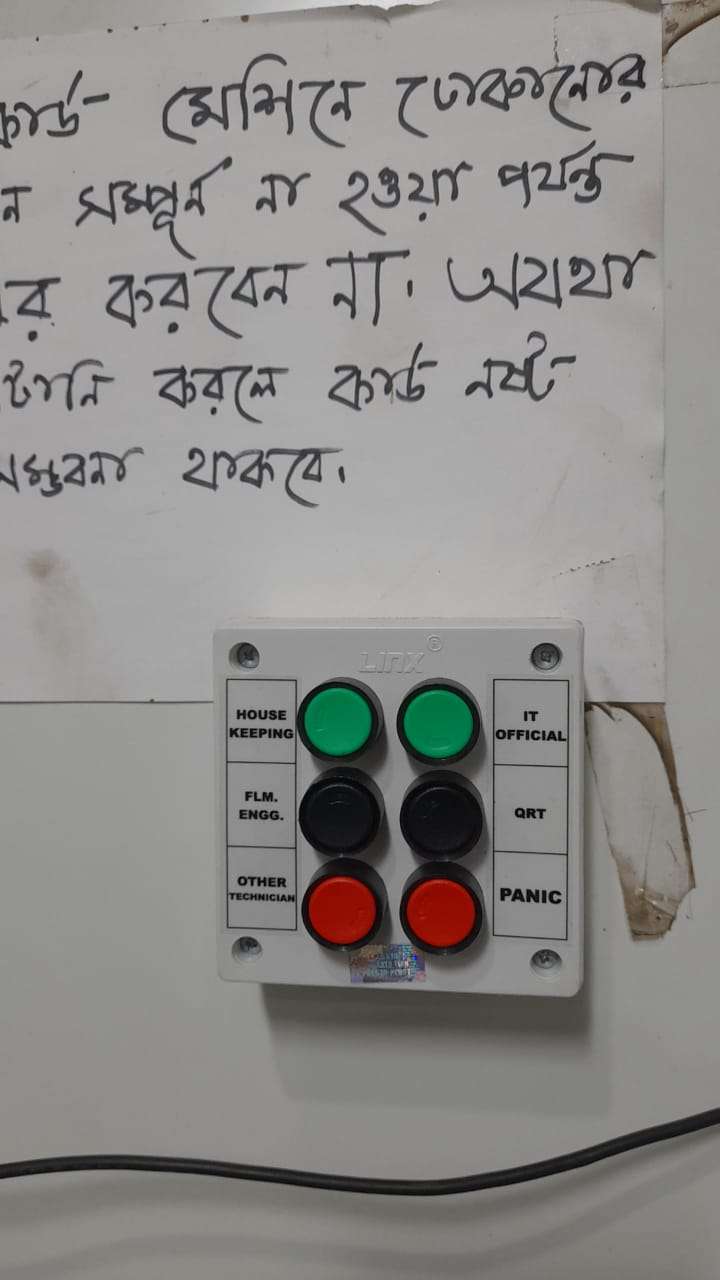 কার্ড মেশিনে ঢোকানোর
ন সম্পূর্ন না হওয়া পর্যন্ত
র করবেন না. অযথা
টানি করলে কার্ড নষ্ট
সম্ভবনা থাকবে.
LINX®
HOUSE
KEEPING
IT
OFFICIAL
FLM.
ENGG.
QRT
OTHER
TECHNICIAN
PANIC